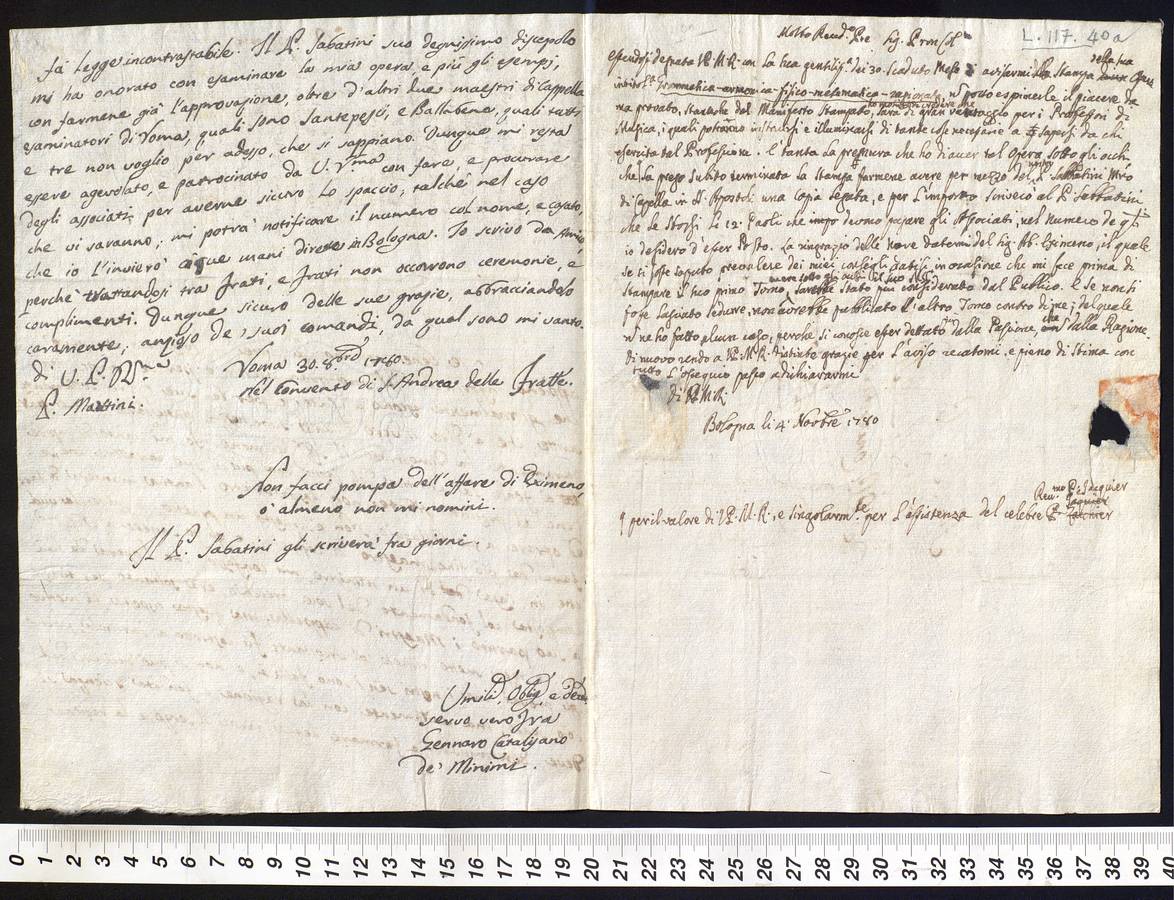 fà Legge incontrastabile. Il P. Sabatini suo degnissimo discepolo
mi ha onorato con esaminare la mia opera e più gli esempj,
con farmene già l'approvazione, oltre d'altri due maestri di Cappella
esaminatori di Roma, quali sono Santepesi, e Ballabene, quali tutti
e tre non voglio per adesso, che si sappiano. Dunque mi resta
essere agevolato, e patrocinato da U. R.ma con fare, e procurare
degli associati, per averne sicuro Lo spaccio; talchè nel caso
che vi saranno, mi potrà notificare il numero col nome, e casato,
che io L'invierò à que mani dirette in Bologna. Io scrivo da Amico
perchè trattandosi tra frati, e frati non occorrono ceremonie, e
complimenti. Dunque sicuro delle sue grazie, abbracciandolo
caramente, anzioso de' suoi comandi, da qual sono mi vanto.
di U. P. R.ma
Roma 30. 8bre 1780
P. Martini.
Nel Convento di S. Andrea delle Fratte.
Non facci pompa dell'affare di Eximeno,
o' almeno non mi nomini.
Il P. Sabatini gli scriverà fra giorni.
Umiliss. Obblig. e
servo vero Fra
Gennaro Catalisano
de' Minimi.
L. 117. 40a
Molto Rend.o Pre Sig. Pron Col.
essendosi degnata V.P.M.R. con la sua gentiliss.a dei 30. Scaduto Mese di avisarmi della Stampa della sua Opera
Grammatica-armonica-fisico-matematica-ragionata, posso esprimerle il piacere da
me provato, stante che dal Manifesto Stampato, sarà di gran vantaggio per i Professori di
Musica, i quali potranno instruirsi e illuminarsi di tante cose necessarie a sapersi da chi
esercita tal Professione. È tanta la premura che ho di aver tal Opera sotto gli occhi,
che la prego subito terminata la Stampa farmene avere per mezzo del nostro P. Sabbatini Mro
di Capella in SS. Apostoli una copia legata, e per l'importo s'intenda col P. Sabbatini
che le Li 12. Paoli che devono pagare gli Associati, nel Numero de quali
io desidero d'esser Posto. La ringrazio delle nove datemi del Sig. Ab. Eximeno, il quale
se si fosse saputo prevalere dei miei consegli datigli in occasione che mi fece prima di
Stampare il suo primo Tomo, sarebbe stato più considerato dal Publico. E se non si
fosse lasciato sedurre, non avrebbe pubblicato l'altro Tomo contro di me; del quale
non ne ho fatto alcun caso, perchè si conosce esser dettato dalla Passione, che dalla Ragione.
Di nuovo rendo a V.P.M.R. distinte grazie per l'aviso recatomi, e pieno di Stima con
tutto l'ossequio passo a dichiararmi
di V.P.M.R.
Bologna li 4 Novbre 1780
per il valore di V.P.M.R., e singolarm.te per l'assistenza del celebre Rev.mo P. Jacquier